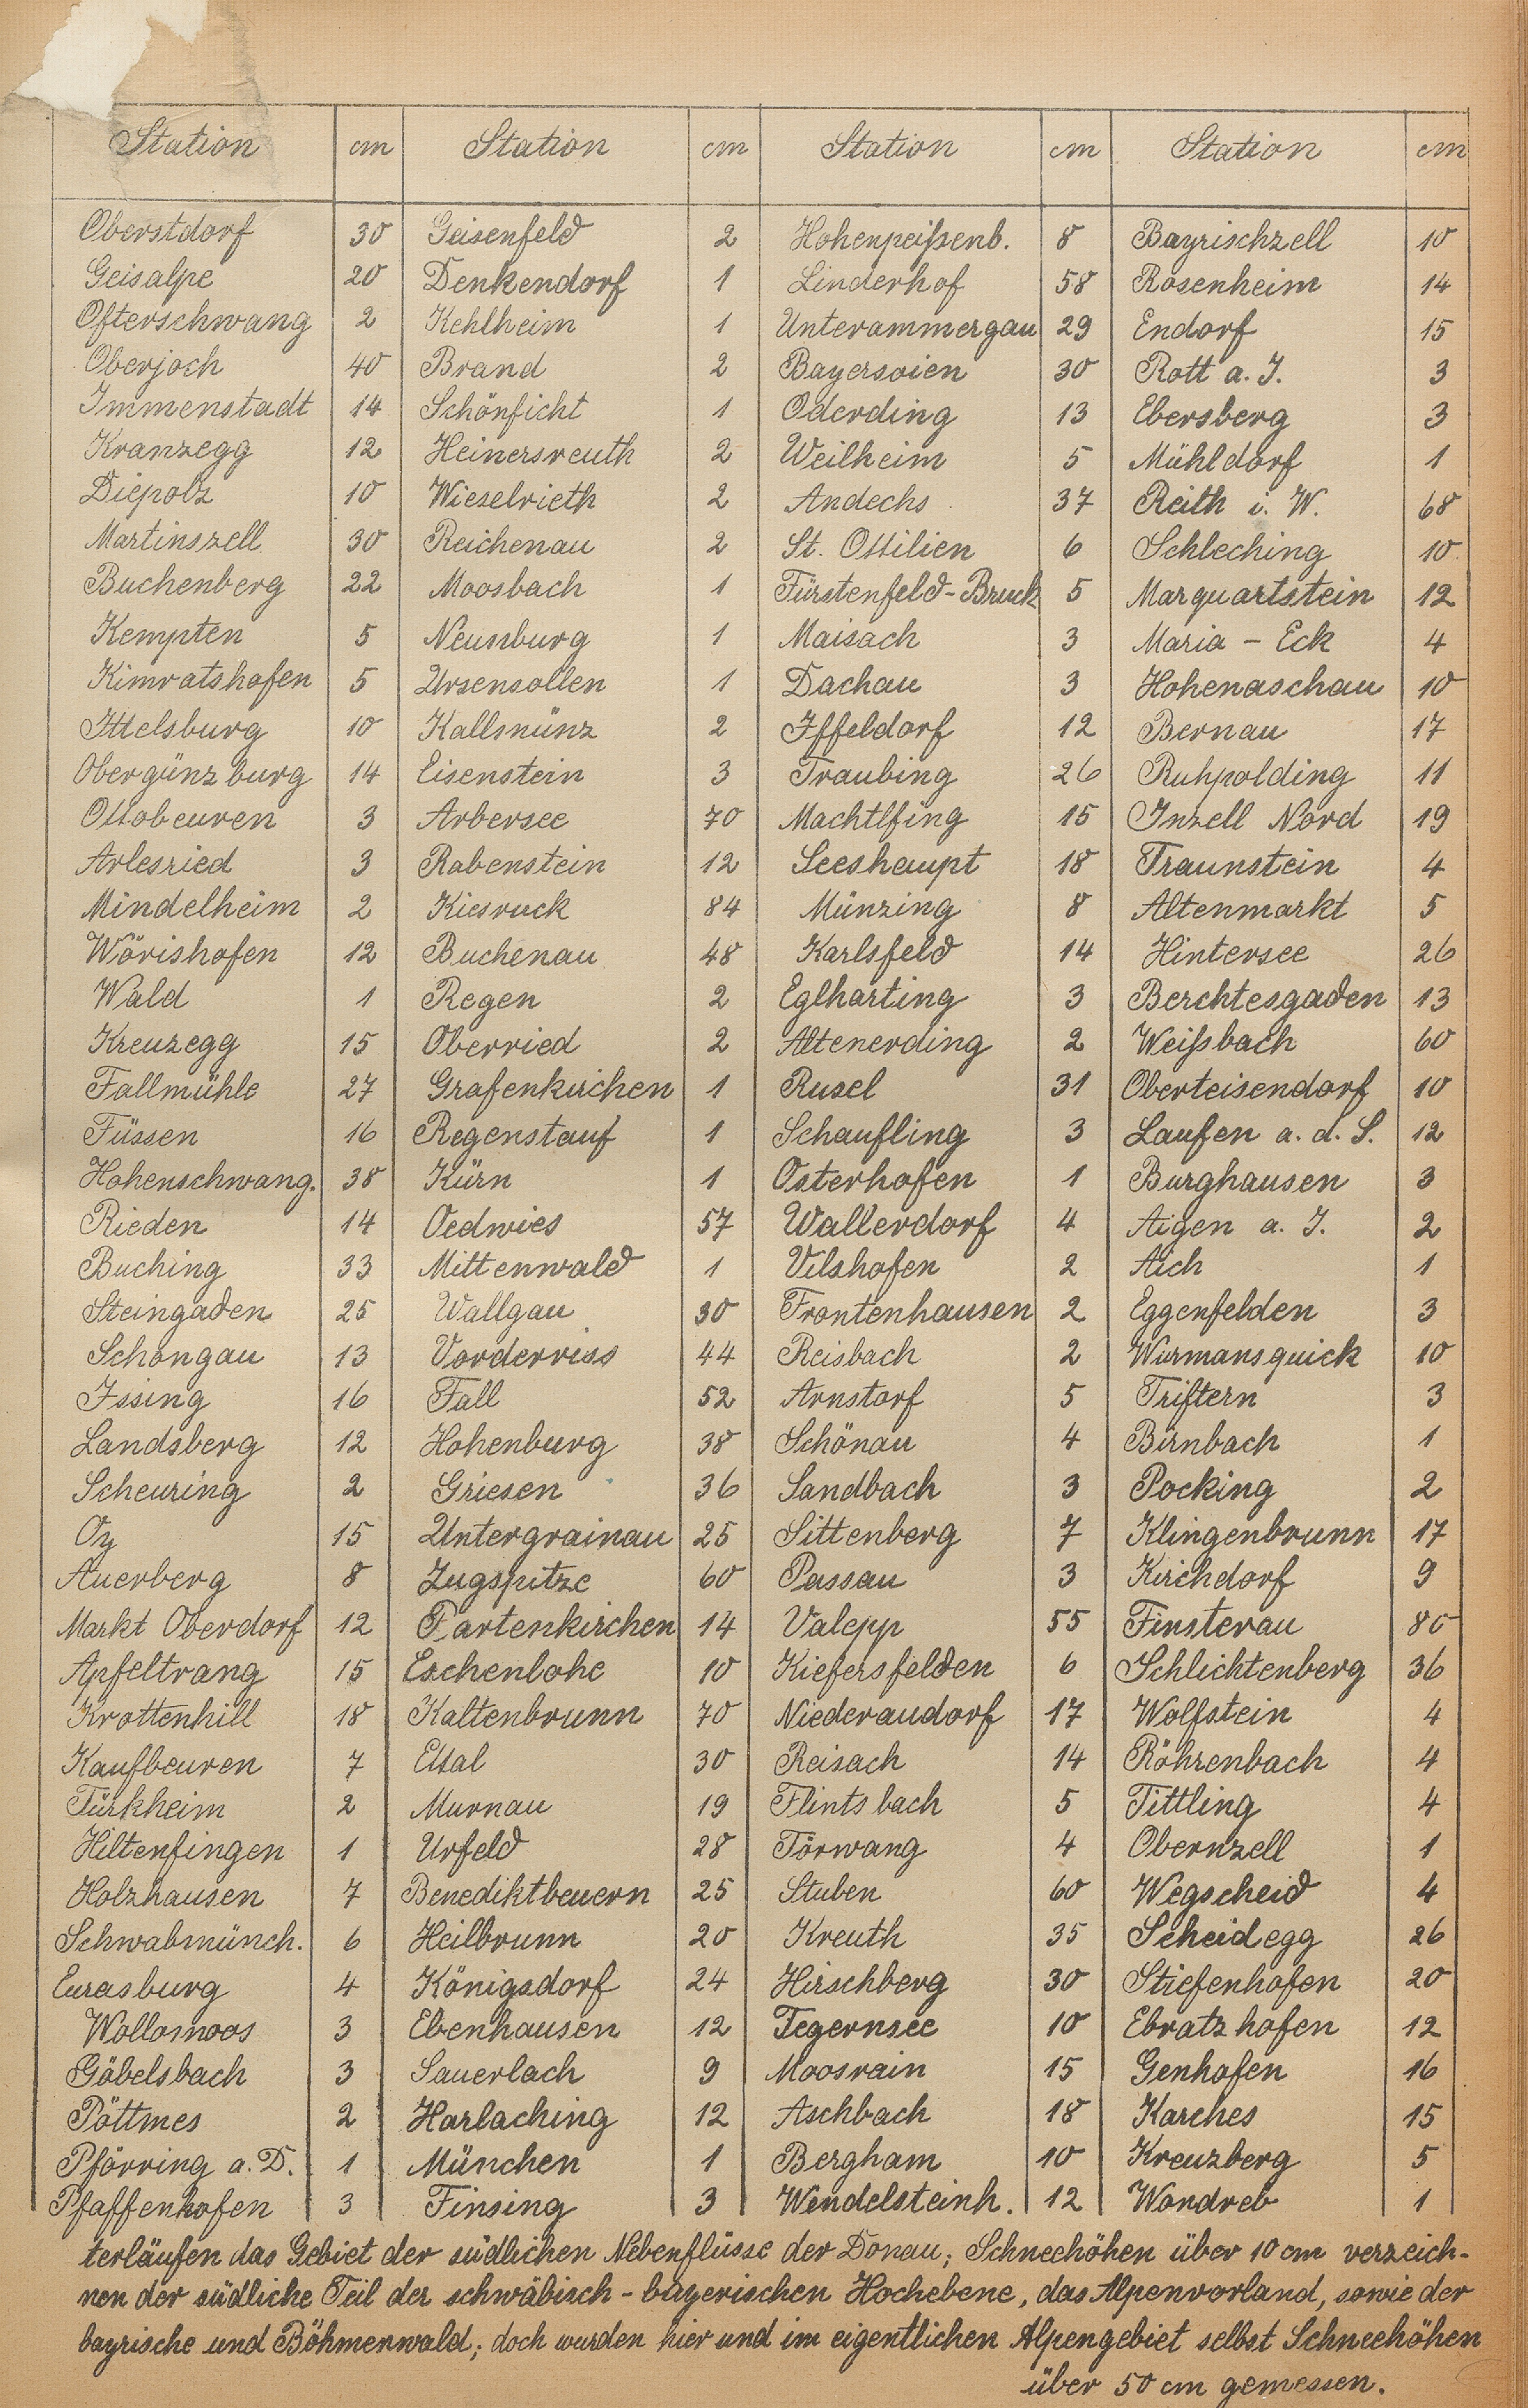 Station cm Station cm Station cm Station cm
Oberstdorf 30 Geisenfeld 2 Hohenpeißenb. 8 Bayrischzell 10
Geisalpe 20 Denkendorf 1 Linderhof 58 Rosenheim 14
Ofterschwang 2 Kehlheim 1 Unterammergau 29 Endorf 15
Oberjoch 40 Brand 2 Bayersoien 30 Rott a. I. 3
Immenstadt 14 Schönficht 1 Oderding 13 Ebersberg 3
Kranzegg 12 Heinersreuth 2 Weilheim 5 Mühldorf 1
Diepolz 10 Wieselrieth 2 Andechs 37 Reith i. W. 68
Martinszell 30 Reichenau 2 St. Ottilien 6 Schleching 10
Buchenberg 22 Moosbach 1 Fürstenfeld-Bruck 5 Marquartstein 12
Kempten 5 Neunburg 1 Maisach 3 Maria - Eck 4
Kimratshofen 5 Ursensollen 1 Dachau 3 Hohenaschau 10
Ittelsburg 10 Kallmünz 2 Iffeldorf 12 Bernau 17
Obergünzburg 14 Eisenstein 3 Traubing 26 Ruhpolding 11
Ottobeuren 3 Arbersee 70 Machtlfing 15 Inzell Nord 19
Arlesried 3 Rabenstein 12 Seeshaupt 18 Traunstein 4
Mindelheim 2 Kiesruck 84 Münzing 8 Altenmarkt 5
Wörishofen 12 Buchenau 48 Karlsfeld 14 Hintersee 26
Wald 1 Regen 2 Eglharting 3 Berchtesgaden 13
Kreuzegg 15 Oberried 2 Altenerding 2 Weißbach 60
Fallmühle 27 Grafenkirchen 1 Rusel 31 Oberteisendorf 10
Füssen 16 Regenstauf 1 Schaufling 3 Laufen a. d. S. 12
Hohenschwang. 38 Kürn 1 Osterhofen 1 Burghausen 3
Rieden 14 Oedwies 57 Wallerdorf 4 Aigen a. I. 2
Buching 33 Mittenwald 1 Vilshofen 2 Aich 1
Steingaden 25 Wallgau 30 Frontenhausen 2 Eggenfelden 3
Schongau 13 Vorderriss 44 Reisbach 2 Wurmansquick 10
Issing 16 Fall 52 Arnstorf 5 Triftern 3
Landsberg 12 Hohenburg 38 Schönau 4 Birnbach 1
Scheuring 2 Griesen 36 Sandbach 3 Pocking 2
Oy 15 Untergrainau 25 Sittenberg 7 Klingenbrunn 17
Auerberg 8 Zugspitze 60 Passau 3 Kirchdorf 9
Markt Oberdorf 12 Partenkirchen 14 Valepp 55 Finsterau 80
Apfeltrang 15 Eschenlohe 10 Kiefersfelden 6 Schlichtenberg 36
Krottenhill 18 Kaltenbrunn 70 Niederaudorf 17 Wolfstein 4
Kaufbeuren 7 Ettal 30 Reisach 14 Röhrenbach 4
Türkheim 2 Murnau 19 Flintsbach 5 Tittling 4
Hiltenfingen 1 Urfeld 28 Törwang 4 Obernzell 1
Holzhausen 7 Benediktbeuern 25 Stuben 60 Wegscheid 4
Schwabmünch. 6 Heilbrunn 20 Kreuth 35 Scheidegg 26
Eurasburg 4 Königsdorf 24 Hirschberg 30 Stiefenhofen 20
Wollomoos 3 Ebenhausen 12 Tegernsee 10 Ebratzhofen 12
Göbelsbach 3 Sauerlach 9 Moosrain 15 Genhofen 16
Pöttmes 2 Harlaching 12 Aschbach 18 Karches 15
Pförring a. D. 1 München 1 Bergham 10 Kreuzberg 5
Pfaffenhofen 3 Finsing 3 Wendelsteinh. 12 Wondreb 1
terläufen das Gebiet der südlichen Nebenflüsse der Donau; Schneehöhen über 10 cm verzeich-
nen der südliche Teil der schwäbisch - bayerischen Hochebene, das Alpenvorland, sowie der
bayrische und Böhmerwald; doch wurden hier und im eigentlichen Alpengebiet selbst Schneehöhen
über 50 cm gemessen.